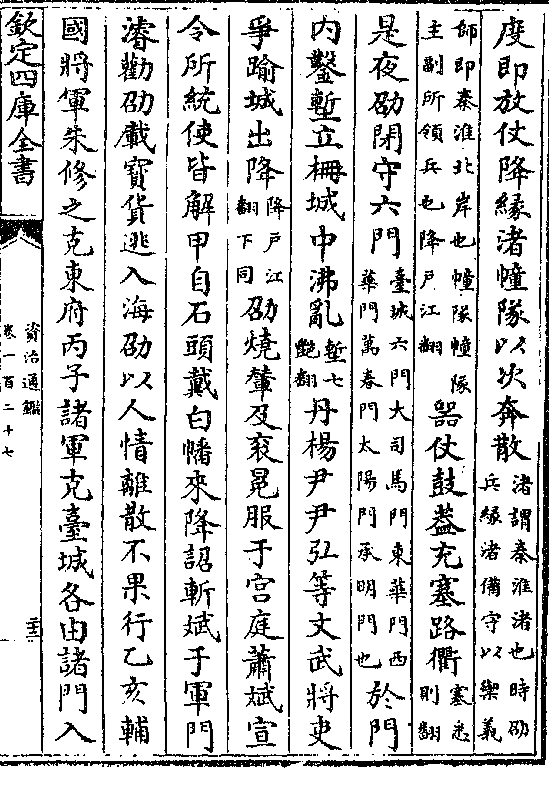 度即放仗降緣渚幢隊以次奔散渚謂秦淮渚也時劭兵緣渚備守以禦義
師即秦淮北岸也幢隊幢隊主副所領兵也降戸江翻器仗鼓蓋充塞路衢塞悉則翻
是夜劭閉守六門臺城六門大司馬門東華門西華門萬春門太陽門承明門也於門
内鑿塹立柵城中沸亂塹七艶翻丹楊尹尹弘等文武將吏
爭踰城出降降戸江翻下同劭燒輦及衮冕服于宫庭蕭斌宣
令所統使皆解甲自石頭戴白幡來降詔斬斌于軍門
濬勸劭載寶貨逃入海劭以人情離散不果行乙亥輔
國將軍朱修之克東府丙子諸軍克臺城各由諸門入
欽定四庫全書
資治通鑑
卷一百二十七
二十三